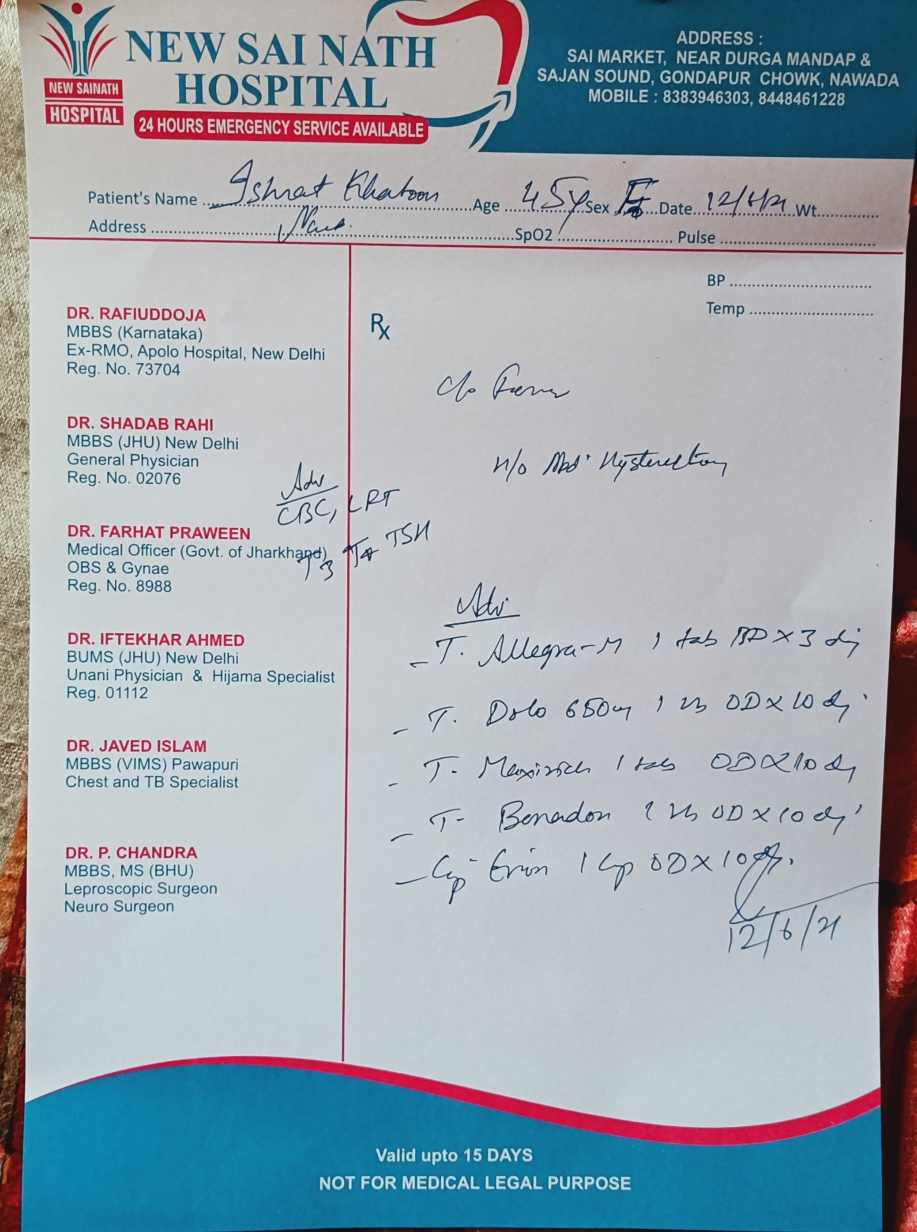 NEW SAI NATH
HOSPITAL
24 HOURS EMERGENCY SERVICE AVAILABLE
NEW SAINATH
HOSPITAL
ADDRESS :
SAI MARKET, NEAR DURGA MANDAP &
SAJAN SOUND, GONDAPUR CHOWK, NAWADA
MOBILE : 8383946303, 8448461228
Patient's Name Ishrat Khatoon Age 45y Sex F Date 12/6/21 Wt
Address SpO2 Pulse
BP
Temp
DR. RAFIUDDOJA
MBBS (Karnataka)
Ex-RMO, Apolo Hospital, New Delhi
Reg. No. 73704
DR. SHADAB RAHI
MBBS (JHU) New Delhi
General Physician
Reg. No. 02076
DR. FARHAT PRAWEEN
Medical Officer (Govt. of Jharkhand)
OBS & Gynae
Reg. No. 8988
DR. IFTEKHAR AHMED
BUMS (JHU) New Delhi
Unani Physician & Hijama Specialist
Reg. 01112
DR. JAVED ISLAM
MBBS (VIMS) Pawapuri
Chest and TB Specialist
DR. P. CHANDRA
MBBS, MS (BHU)
Leproscopic Surgeon
Neuro Surgeon
Adv
CBC, LFT
T3 T4 TSH
Rx
c/o Fever
H/o
Adv
- T. Allegra-M 1 tab BD x 3 dy
- T. Dolo 650 1 OD x 10 dy
- T. 1 tab OD x 10 dy
- T- Benadon 1 OD x 10 dy
- Cap 1 Cap OD x 10 dy.
12/6/21
Valid upto 15 DAYS
NOT FOR MEDICAL LEGAL PURPOSE